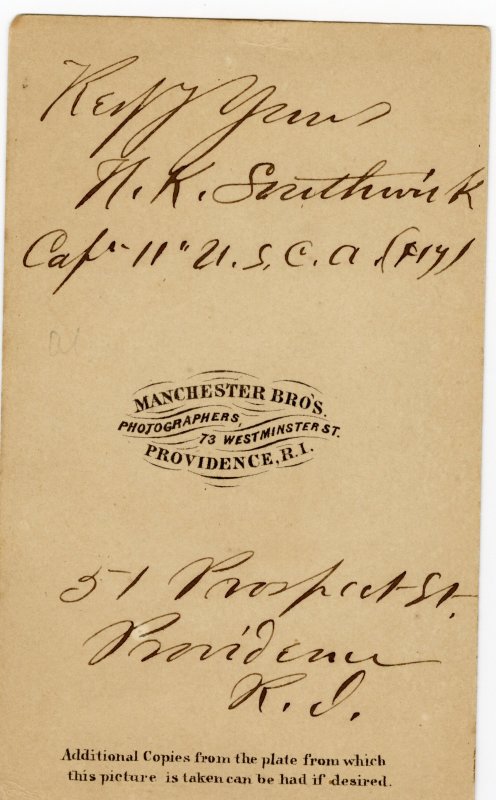 Respy Yours
N. K. Southwick
Capt 11" U. S. C. A. (Hy)
MANCHESTER BRO'S.
PHOTOGRAPHERS,
73 WESTMINSTER ST.
PROVIDENCE, R.I.
51 Prospect St.
Providence
R. I.
Additional Copies from the plate from which
this picture is taken can be had if desired.